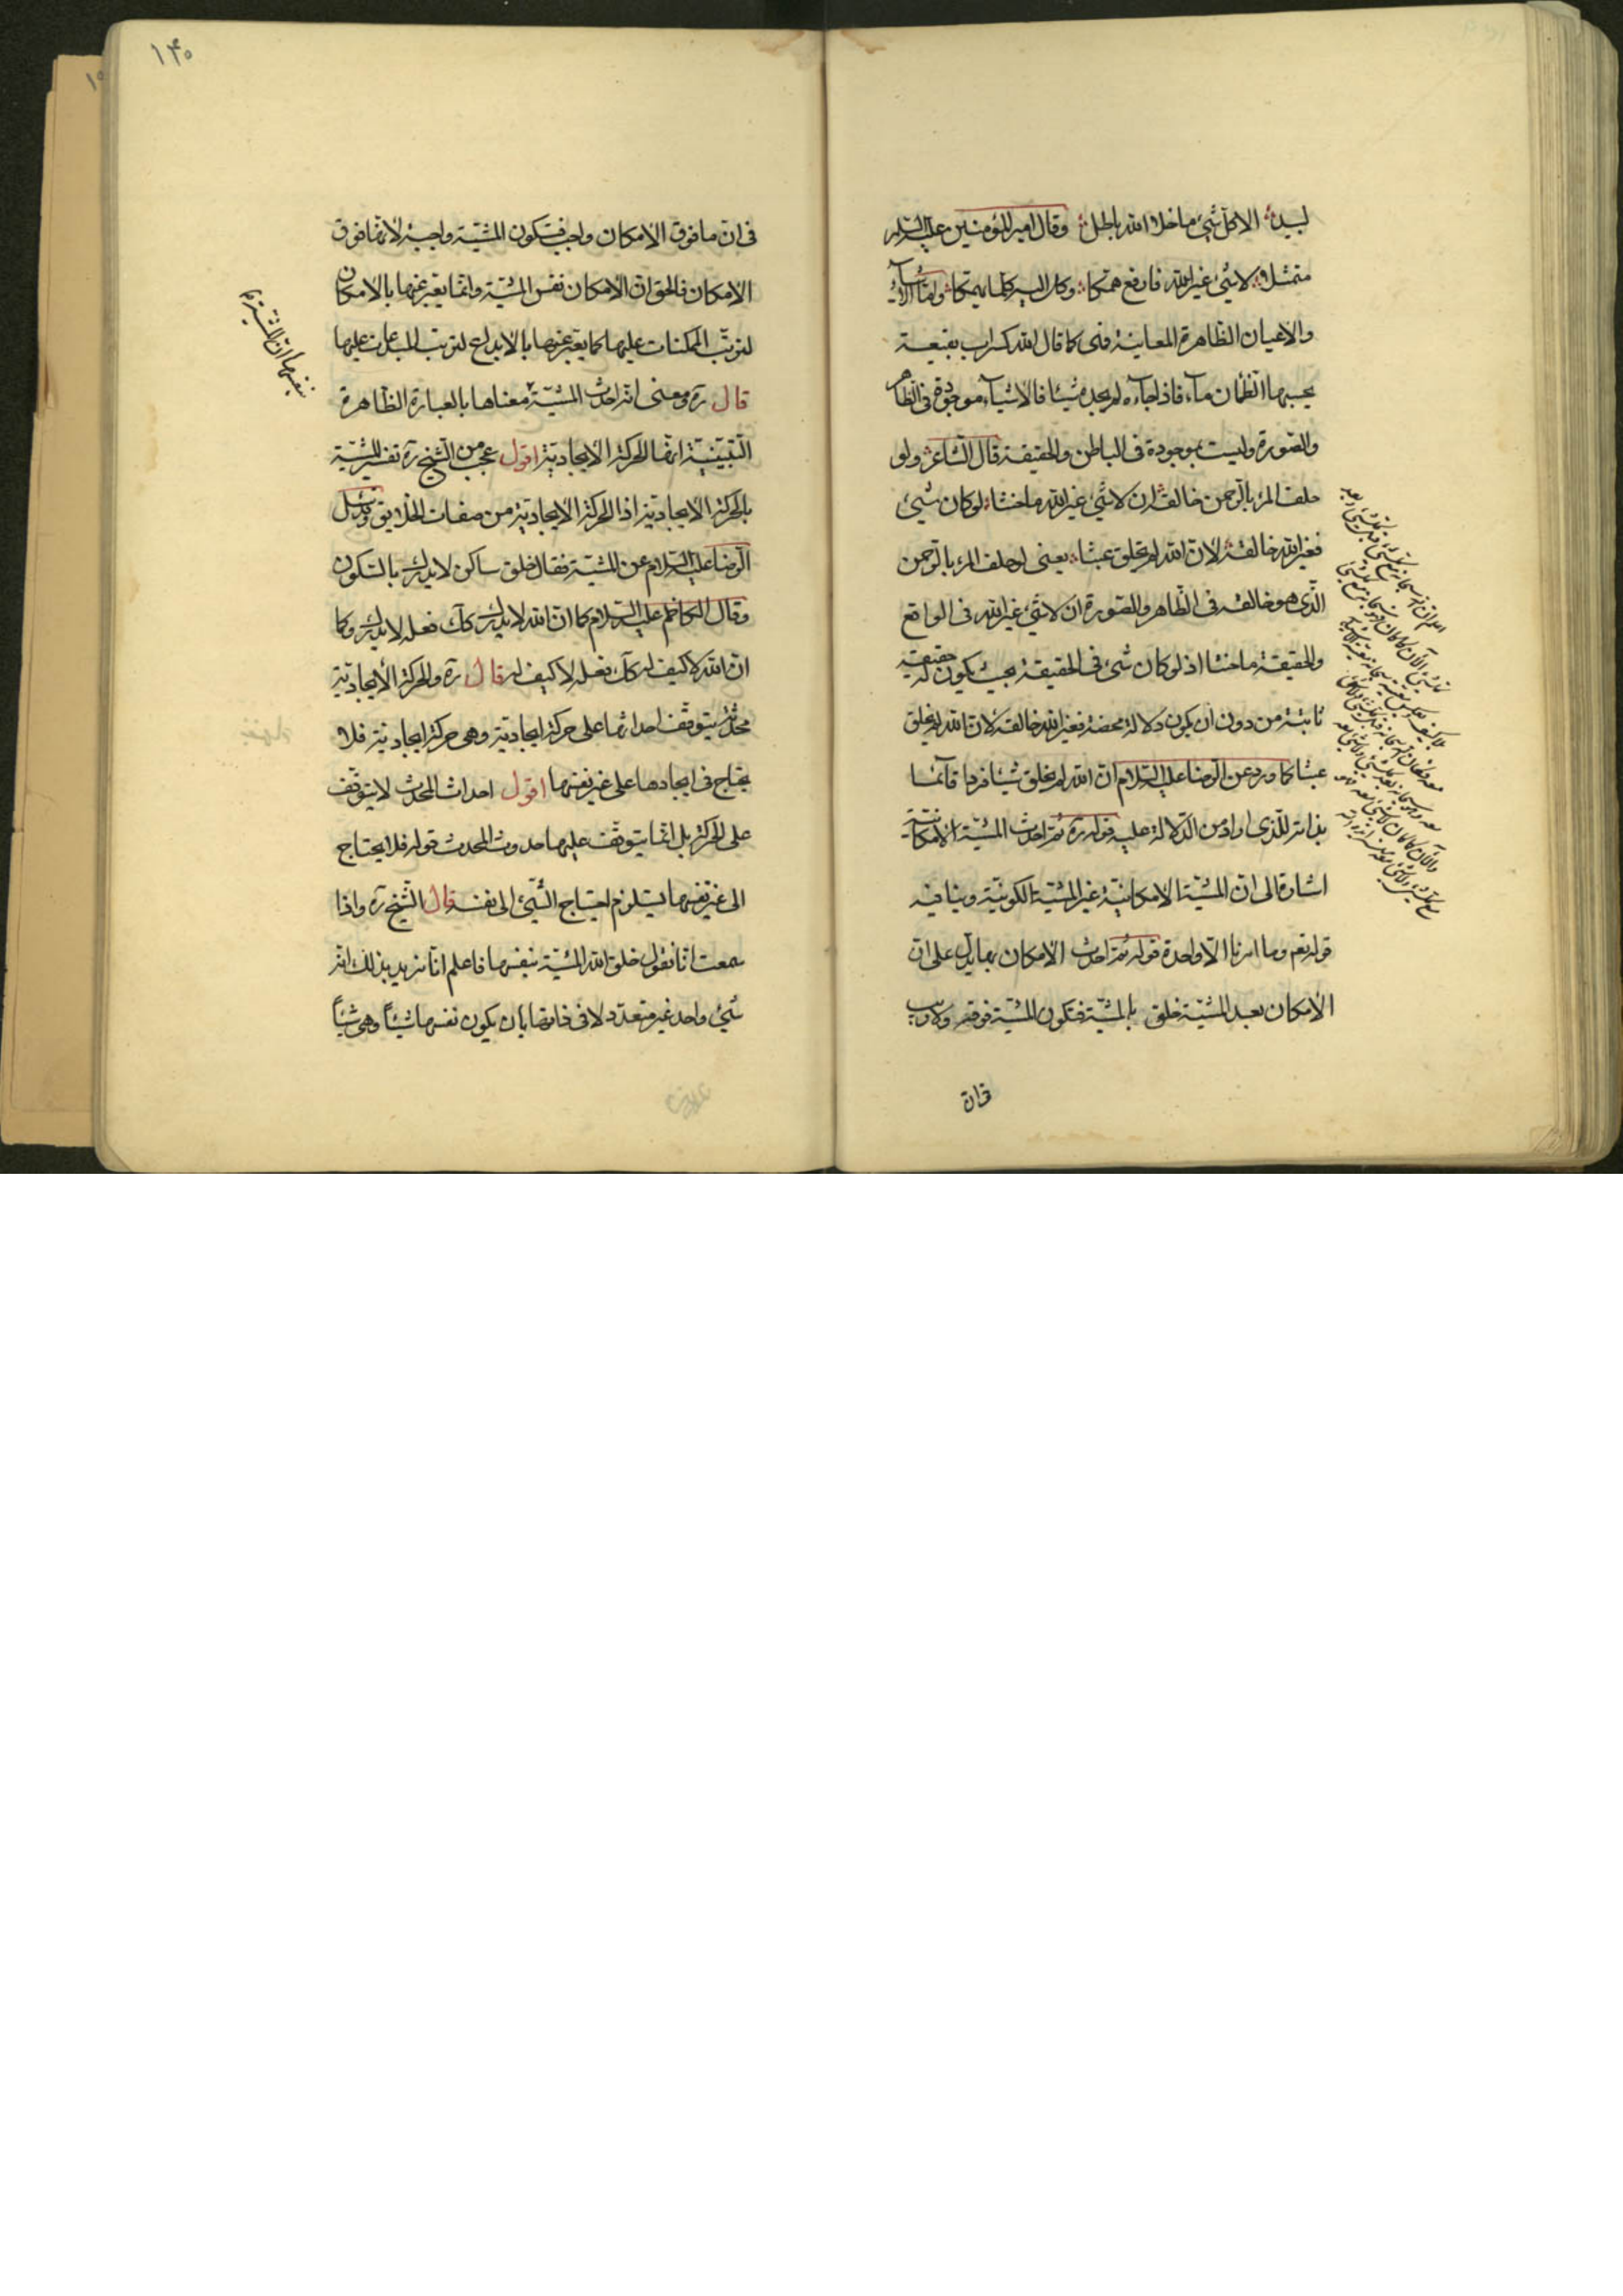 لبيد الا كل شيء ما خلا الله باطل وقال امير المؤمنين عليه السلام
متمثلا لا شيء غير الله فارفع همكا وكل اليه ما يهمكا واما
والاعيان الظاهرة المعاينة فهى كما قال الله كسراب بقيعة
يحسبها الظمان ماء فاذا جاءه لم يجده شيئا فالاشياء موجودة فى الظاهر
والصورة وليست بموجودة فى الباطن والحقيقة قال الشاعر ولو
حلف المرء بالرحمن خالقه ان لا شيء غير الله ما حنثا لو كان شيء
فغير الله خالقه لان الله لم يخلق عبثا يعنى لو حلف المرء بالرحمن
الذى هو خالقه فى الظاهر والصورة ان لا شيء غير الله فى الواقع
والحقيقة ما حنثا اذ لو كان شيء فى الحقيقة بحيث يكون له حقيقة
ثابتة من دون ان يكون دلالة محضة فغير الله خالقه لان الله لم يخلق
عبثا كما ورد عن الرضا عليه السلام ان الله لم يخلق شيئا فردا قائما
بذاته للذى اراد من الدلالة عليه قوله ره ثم احدث المشية الامكانية
اشارة الى ان المشية الامكانية غير المشية الكونية وينافيه
قوله تعم وما امرنا الا واحدة قوله ثم احدث الامكان بها يدل على ان
الامكان بعد المشية خلق بالمشية فتكون المشية فوقه ولا ريب
فى ان
١٤٠
فى ان ما فوق الامكان واجب فتكون المشية واجبة لانها فوق
الامكان فالحق ان الامكان نفس المشية وانما يعبر عنها بالامكان
لترتب الممكنات عليها كما يعبر عنها بالابداع لترتب المبدعات عليها
قال ره ومعنى انه احدث المشية معناها بالعبارة الظاهرة
التبيينية انها الحركة الايجادية اقول عجب من الشيخ ره تفسير المشية
بالحركة الايجادية اذ الحركة الايجادية من صفات الخلايق وسئل
الرضا عليه السلام عن المشية فقال خلق ساكن لا يدرك بالسكون
وقال الكاظم عليه السلام كما ان الله لا يدرك كك فعله لا يدرك وكما
ان الله لا كيف له كك فعله لا كيف له قال ره والحركة الايجادية
محدثة يتوقف احداثها على حركة ايجادية وهى حركة ايجادية فلا
يحتاج فى ايجادها على غير نفسها اقول احداث المحدث لا يتوقف
على الحركة بل انما يتوقف عليها حدوث المحدث قوله فلا يحتاج
الى غير نفسها يستلزم احتياج الشيء الى نفسه قال الشيخ ره واذا
سمعت انا نقول خلق الله المشية بنفسها فاعلم انا نريد بذلك انه
شيء واحد غير متعدد لا فى ذاتها بان يكون نفسها شيئا وهى شيئا